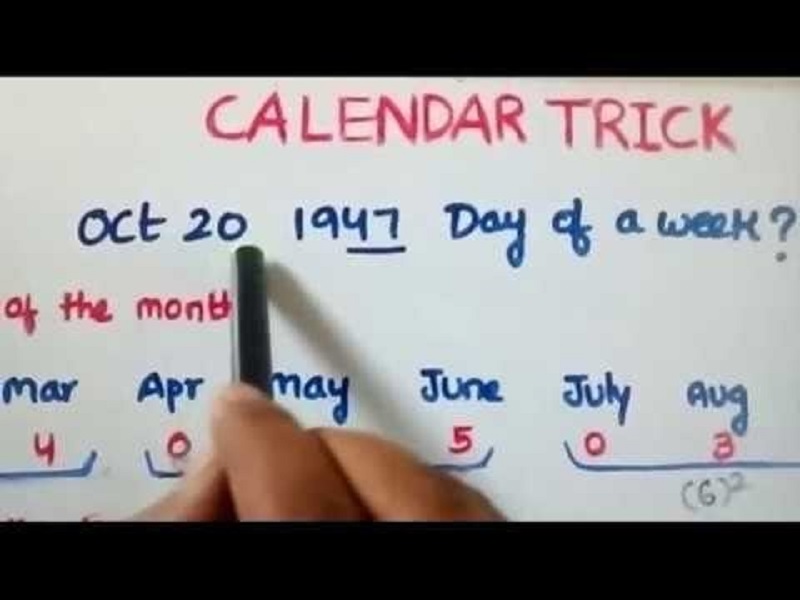 CALENDAR TRICK
Oct 20 1947 Day of a week?
of the month
Mar Apr May June July Aug
4 0 5 0 3
(6)²